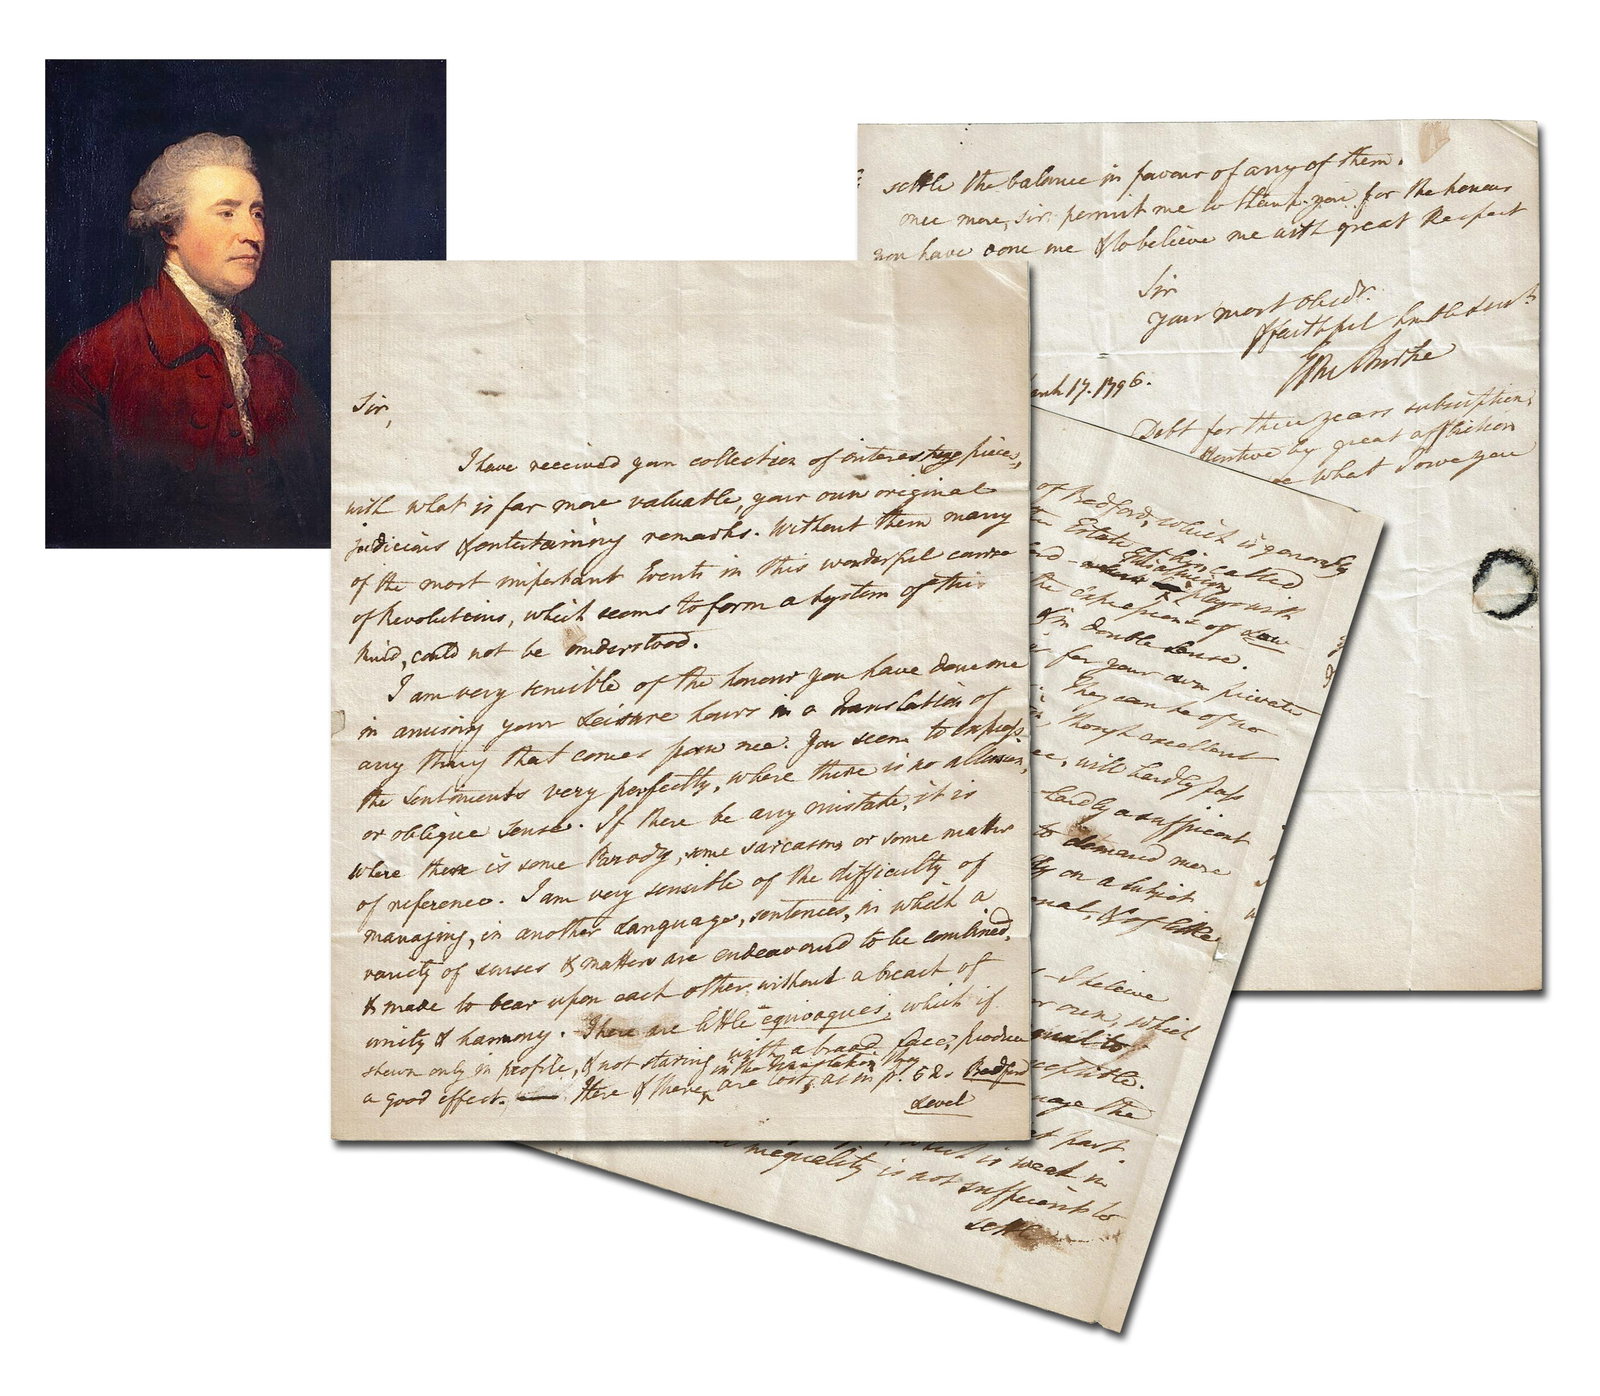 Sir,
I have received your collection of interesting pieces,
with what is far more valuable, your own original
judicious & entertaining remarks. Without them many
of the most important Events in this wonderful course
of Revolutions, which seems to form a System of this
kind, could not be understood.
I am very sensible of the honour you have done me
in amusing your Leisure hours in a Translation of
any thing that comes from me. You seem to express
the sentiments very perfectly, where there is no allusion,
or oblique sense. If there be any mistake, it is
where there is some Parody, some sarcasm, or some matter
of reference. I am very sensible of the difficulty of
managing, in another Language, sentences, in which a
variety of senses & matters are endeavoured to be combined,
& made to bear upon each other, without a breach of
unity & harmony. There are little equivoques, which if
shewn only in profile, & not staring with a broad face, produce
a good effect. Here & there, in the Translation they are lost, as in p. 52. Bedford
Level
of Bedford, which is generally
Estate
called
play with
the expressions of Law
in double sense.
for your own private
They can be of no
though excellent
will hardly pass
hardly a sufficient
to demand more
on a subject
I believe
own, which
equal to
the
part.
is weak in
inequality is not sufficient to
settle
settle the balance in favour of any of them.
once more, Sir, permit me to thank you for the honour
you have done me & to believe me with great Respect
Sir
your most obedt.
& faithful humble Servt.
Edm Burke
March 17. 1796.
Debt for three years subscription,
by great affliction
what I owe you